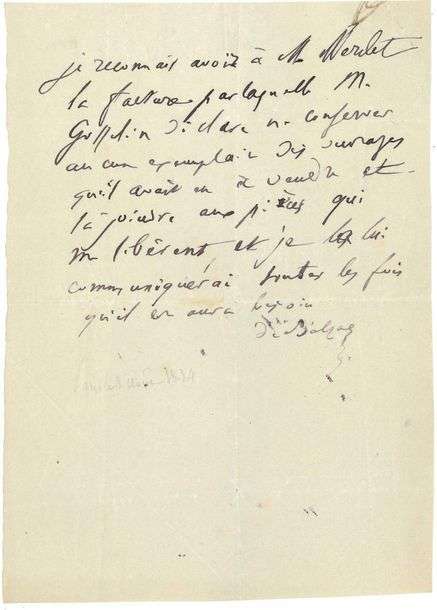 je reconnais avoir à M. Werdet
la facture par laquelle M.
Gosselin déclare ne conserver
aucun exemplaire des ouvrages
qu'il avait eu à vendre et
la joindre aux pièces qui
me libèrent et je la lui
communiquerai toutes les fois
qu'il en aura besoin
de Balzac
1834